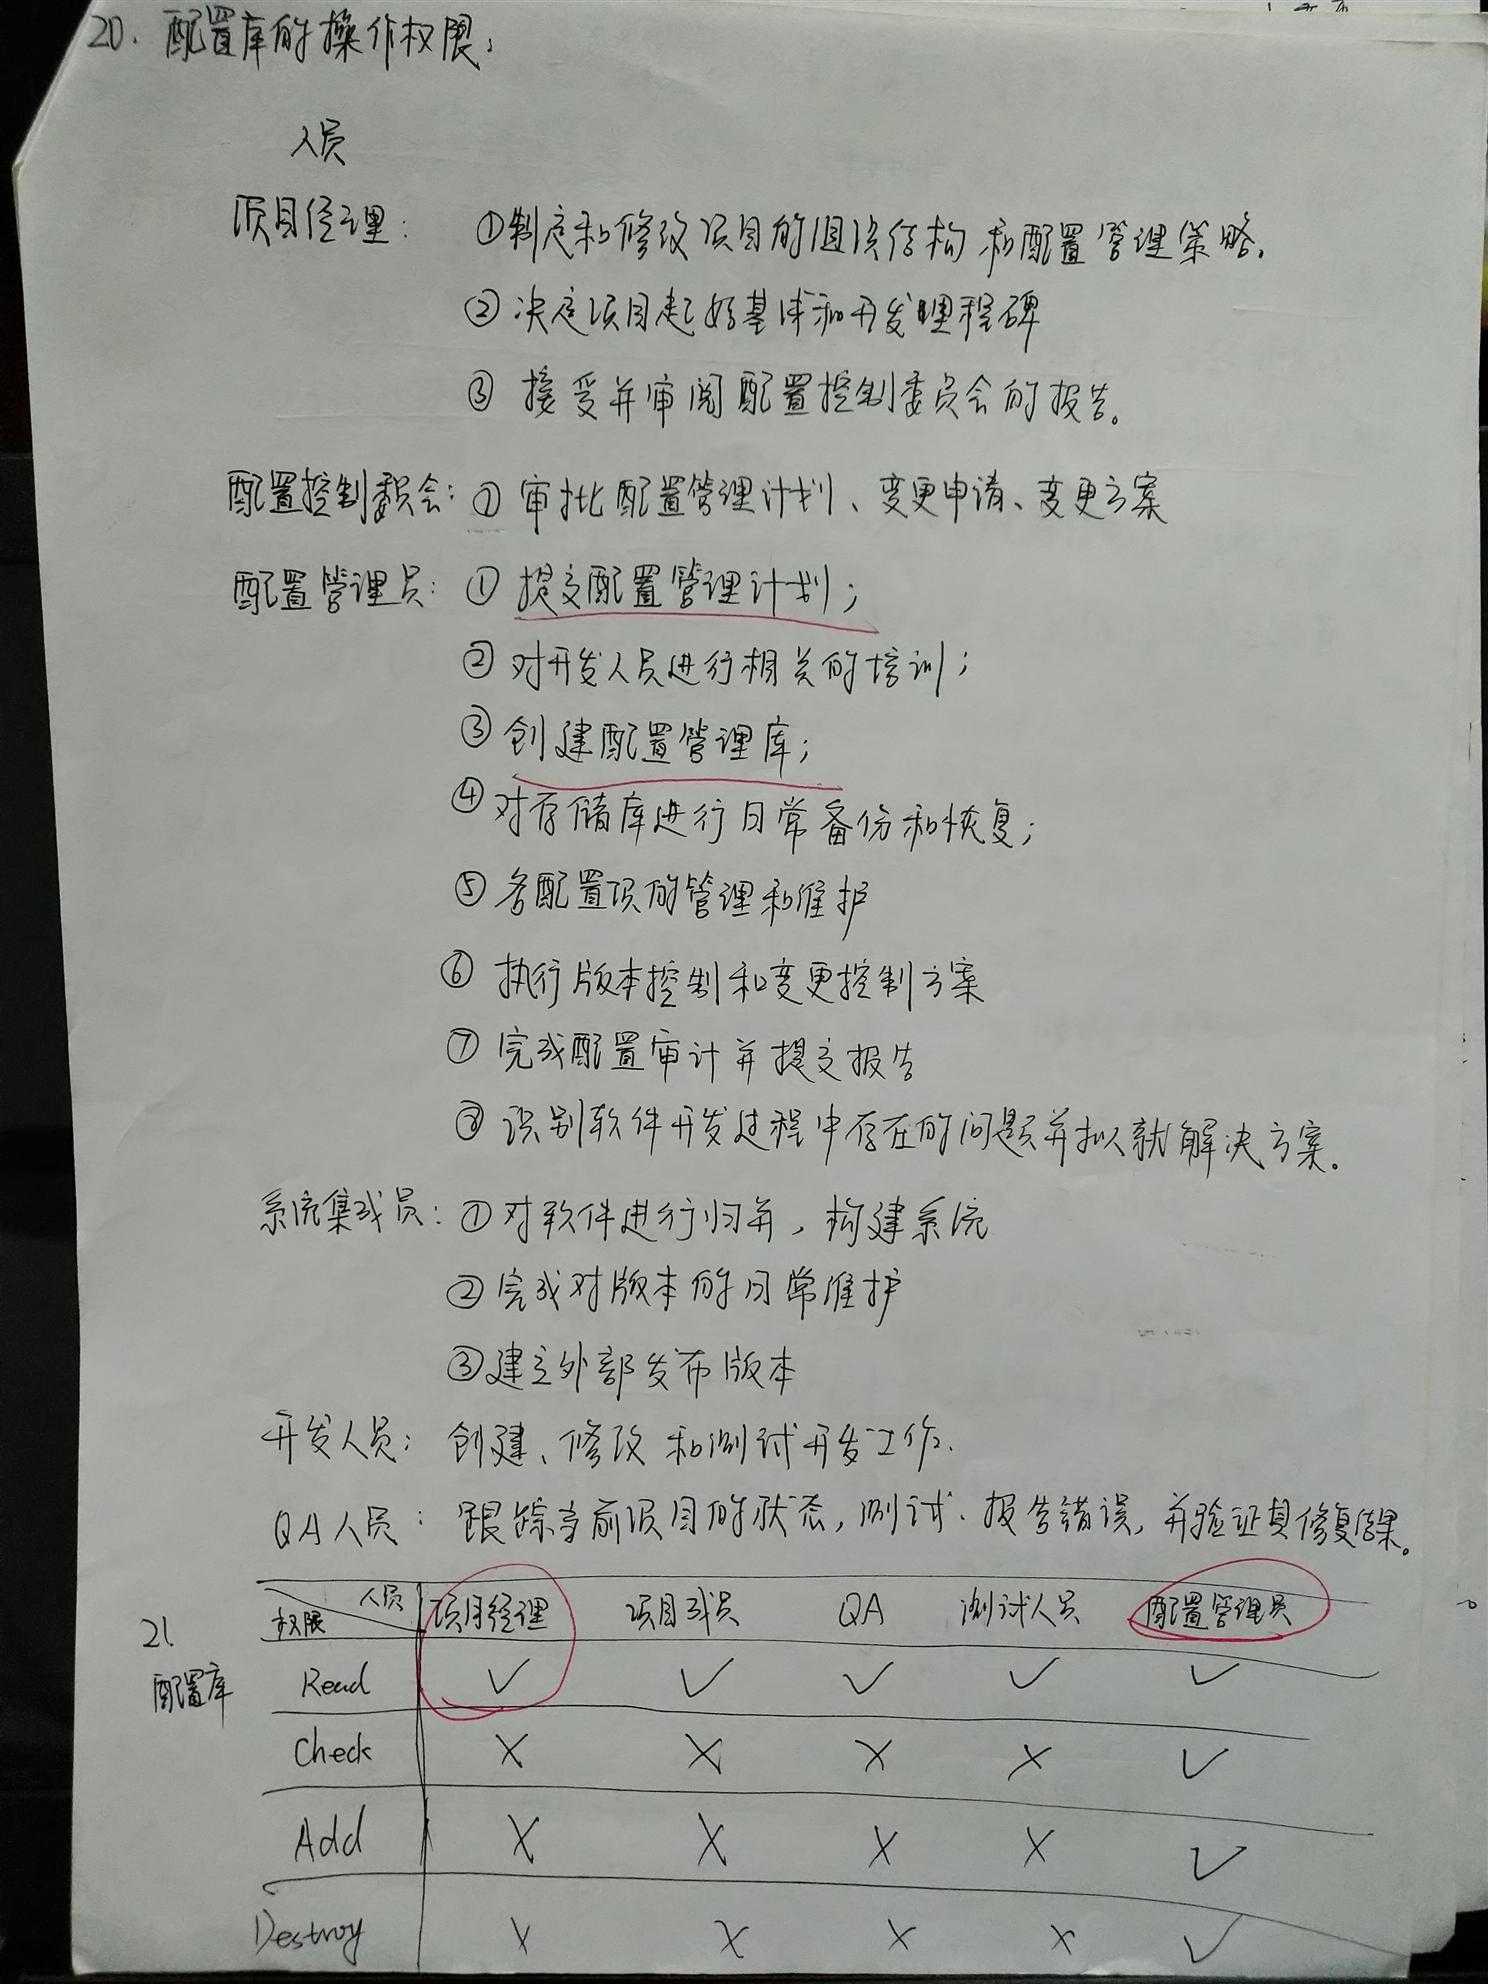 20. 配置库的操作权限：
人员
项目经理： ①制定和修改项目的组织结构和配置管理策略。
②决定项目起始基线和开发里程碑
③ 接受并审阅配置控制委员会的报告。
配置控制委员会：① 审批配置管理计划、变更申请、变更方案
配置管理员：① 提交配置管理计划；
②对开发人员进行相关的培训；
③创建配置管理库；
④对存储库进行日常备份和恢复；
⑤ 各配置项的管理和维护
⑥ 执行版本控制和变更控制方案
⑦ 完成配置审计并提交报告
⑧ 识别软件开发过程中存在的问题并拟就解决方案。
系统集成员：①对软件进行归并，构建系统
②完成对版本的日常维护
③建立外部发布版本
开发人员：创建、修改和测试开发工作.
QA人员：跟踪当前项目的状态，测试、报告错误，并验证其修复结果。
21.
配置库
人员
权限 项目经理 项目成员 QA 测试人员 配置管理员
Read ✓ ✓ ✓ ✓ ✓
Check X X X X ✓
Add X X X X ✓
Destroy X X X X ✓